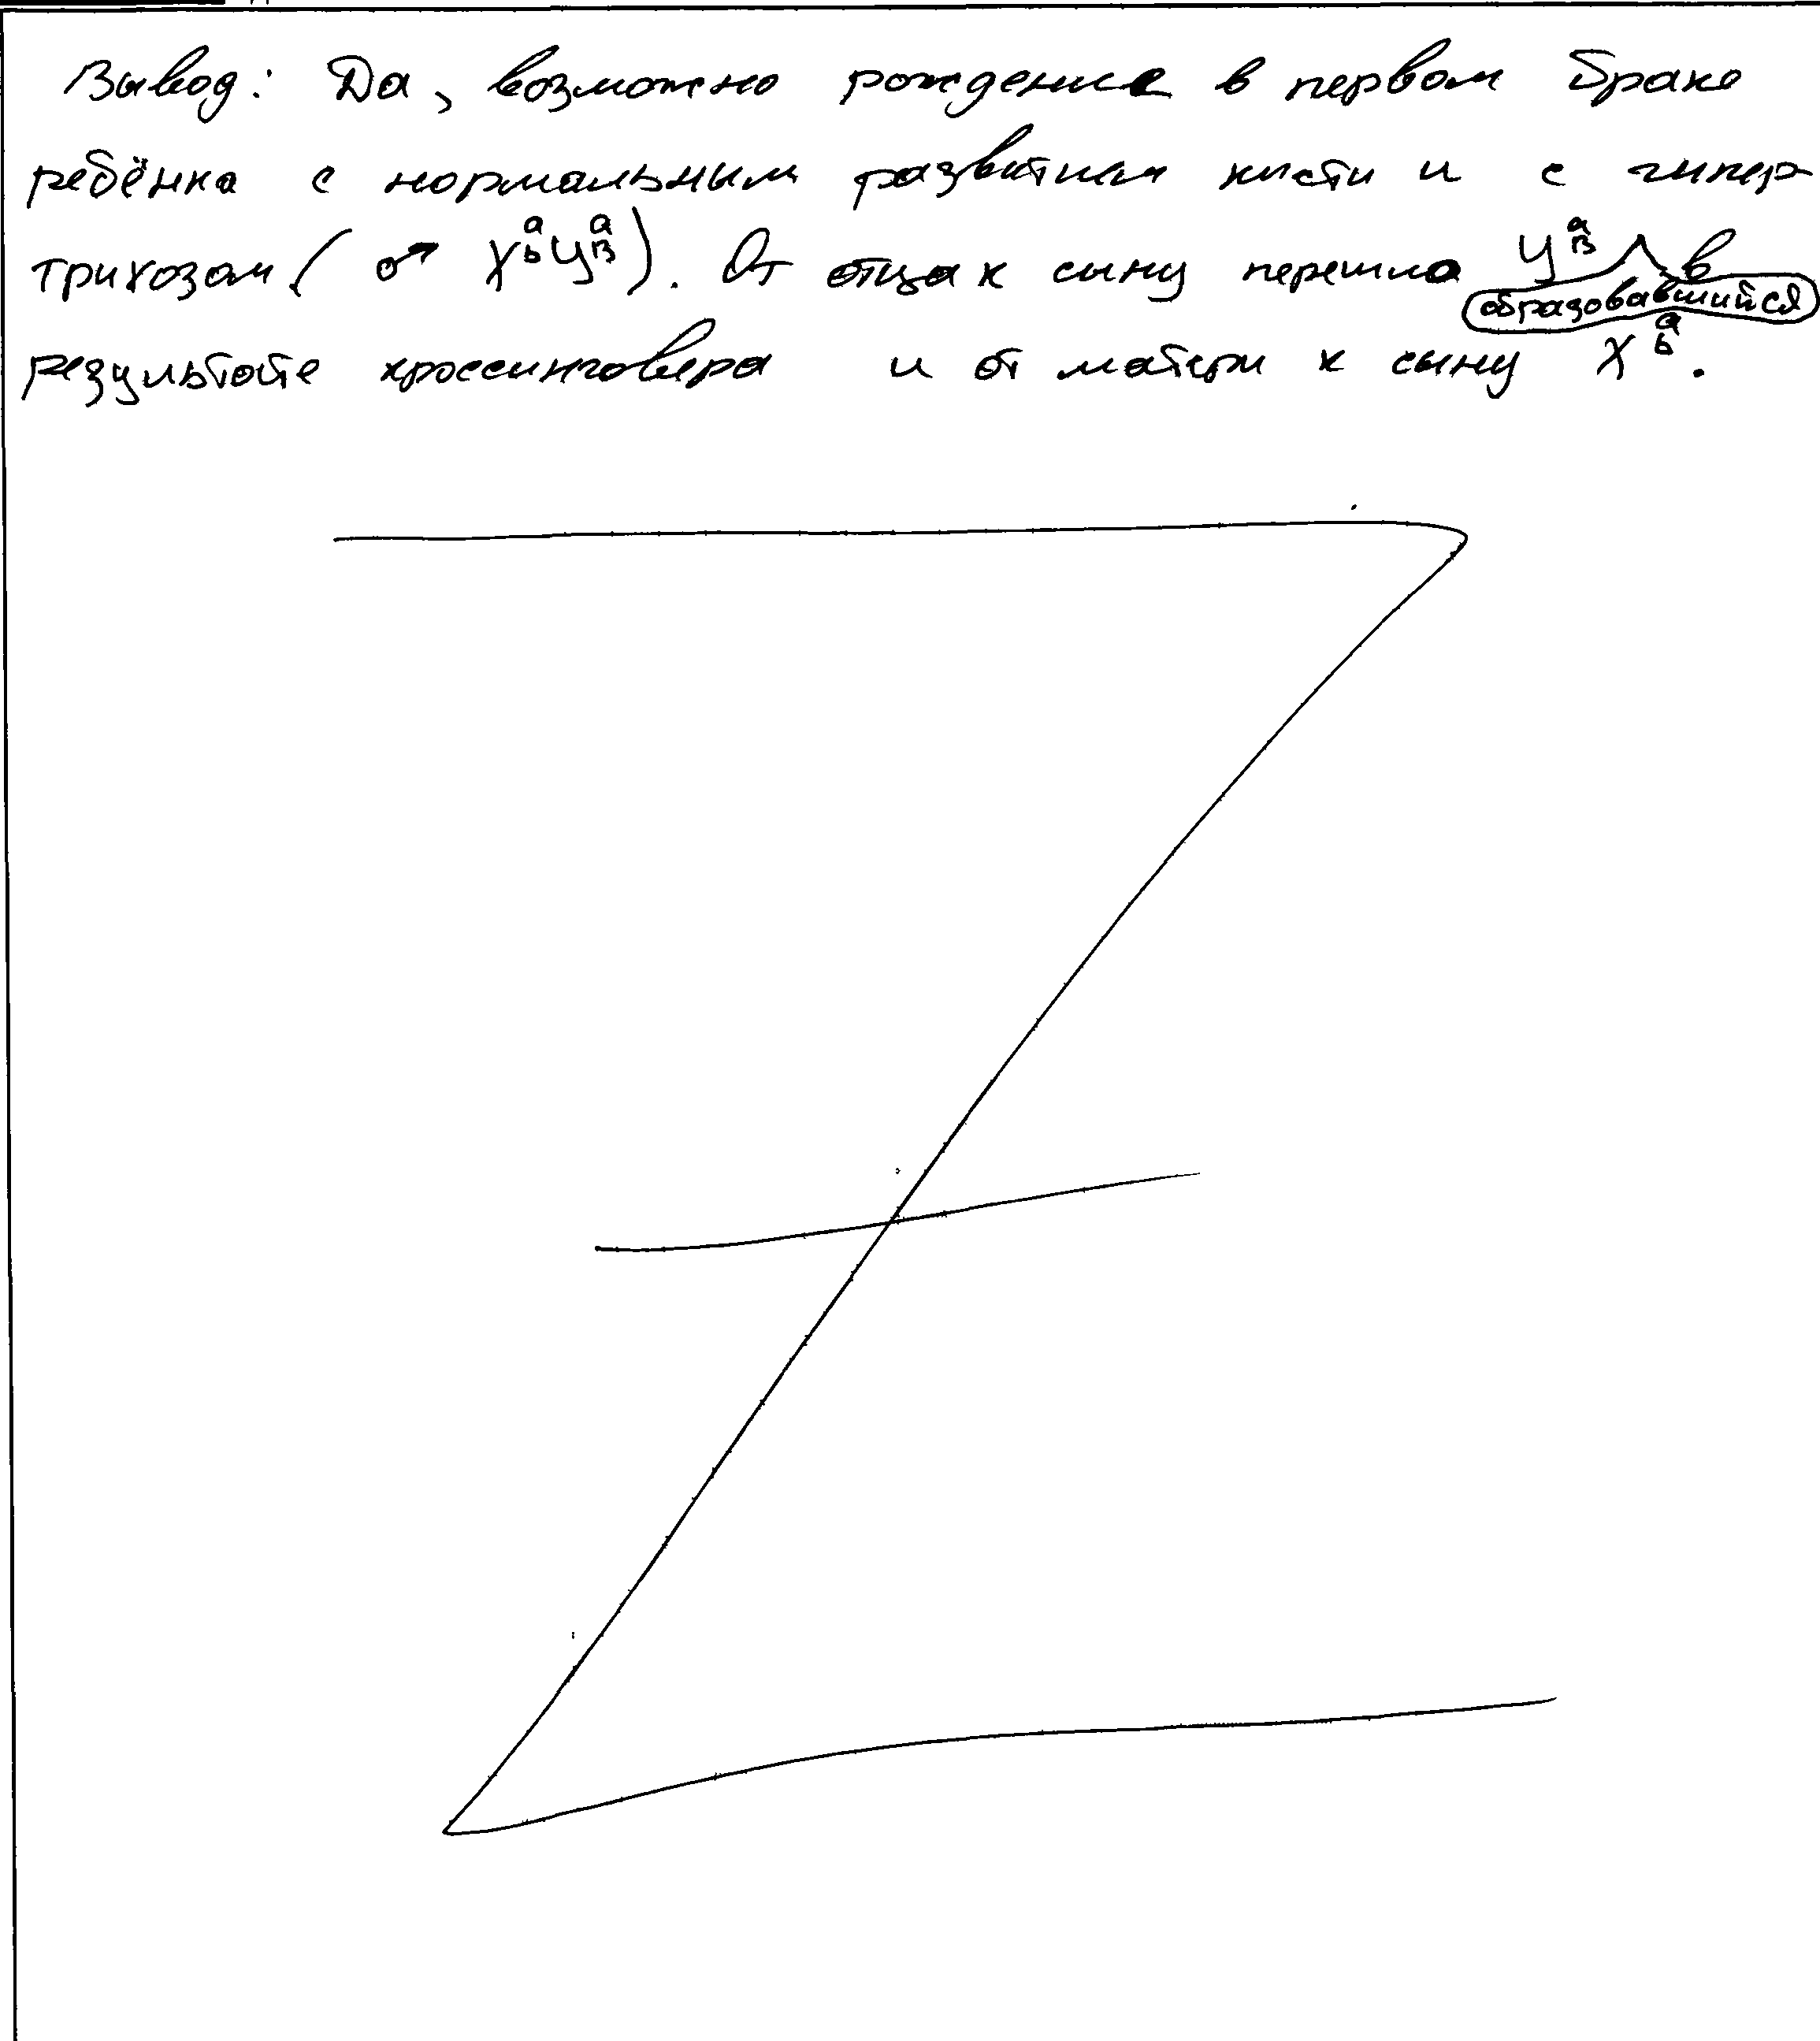 Вывод: Да, возможно рождение в первом браке
ребёнка с нормальным развитием кисти и с гипер-
трихозом (♂ X^a_b Y^a_B). От отца к сыну перешла Y^a_B образовавшийся в
результате кроссинговера и от матери к сыну X^a_b.